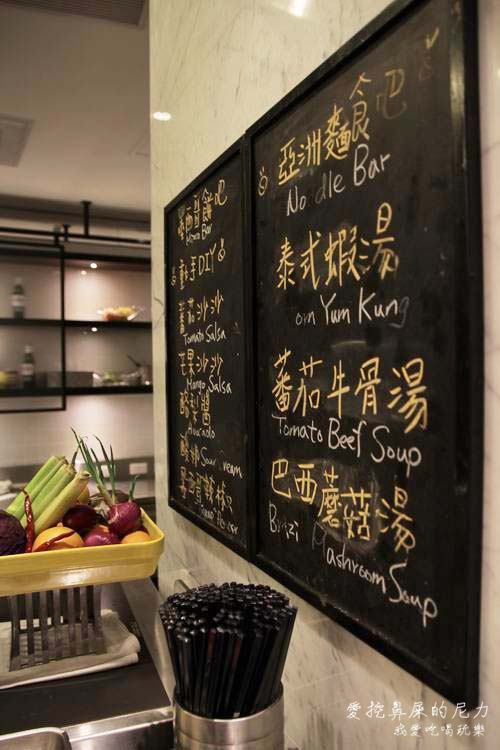 西哥餅吧
Bar
動手DIY
蕃茄沙沙
Tomato Salsa
芒果沙沙
Mango Salsa
酪梨醬
酸奶 Sour Cream
亞洲麵食吧
Noodle Bar
泰式蝦湯
om Yum Kung
蕃茄牛骨湯
Tomato Beef Soup
巴西蘑菇湯
Mashroom Soup
愛挖鼻屎的尼力
我愛吃喝玩樂